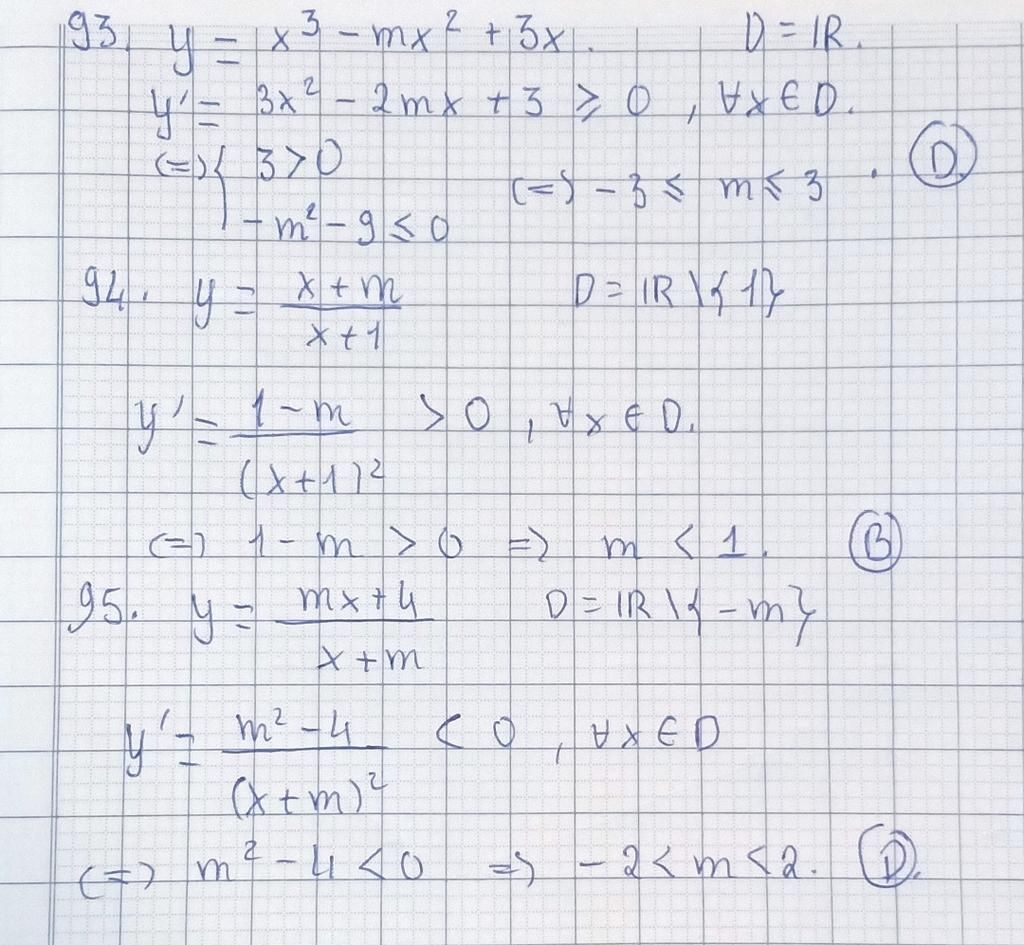 93. y = x³ - mx² + 3x. D = IR.
y' = 3x² - 2mx + 3 ≥ 0, ∀x ∈ D.
(=) { 3 > 0
(=) -3 ≤ m ≤ 3. (D)
- m² - 9 ≤ 0
94. y = (x + m)/(x + 1) D = IR \ {1}
y' = (1 - m)/(x + 1)² > 0, ∀x ∈ D.
(=) 1 - m > 0 =) m < 1. (B)
95. y = (mx + 4)/(x + m) D = IR \ {-m}
y' = (m² - 4)/(x + m)² < 0, ∀x ∈ D
(=) m² - 4 < 0 =) -2 < m < 2. (D).